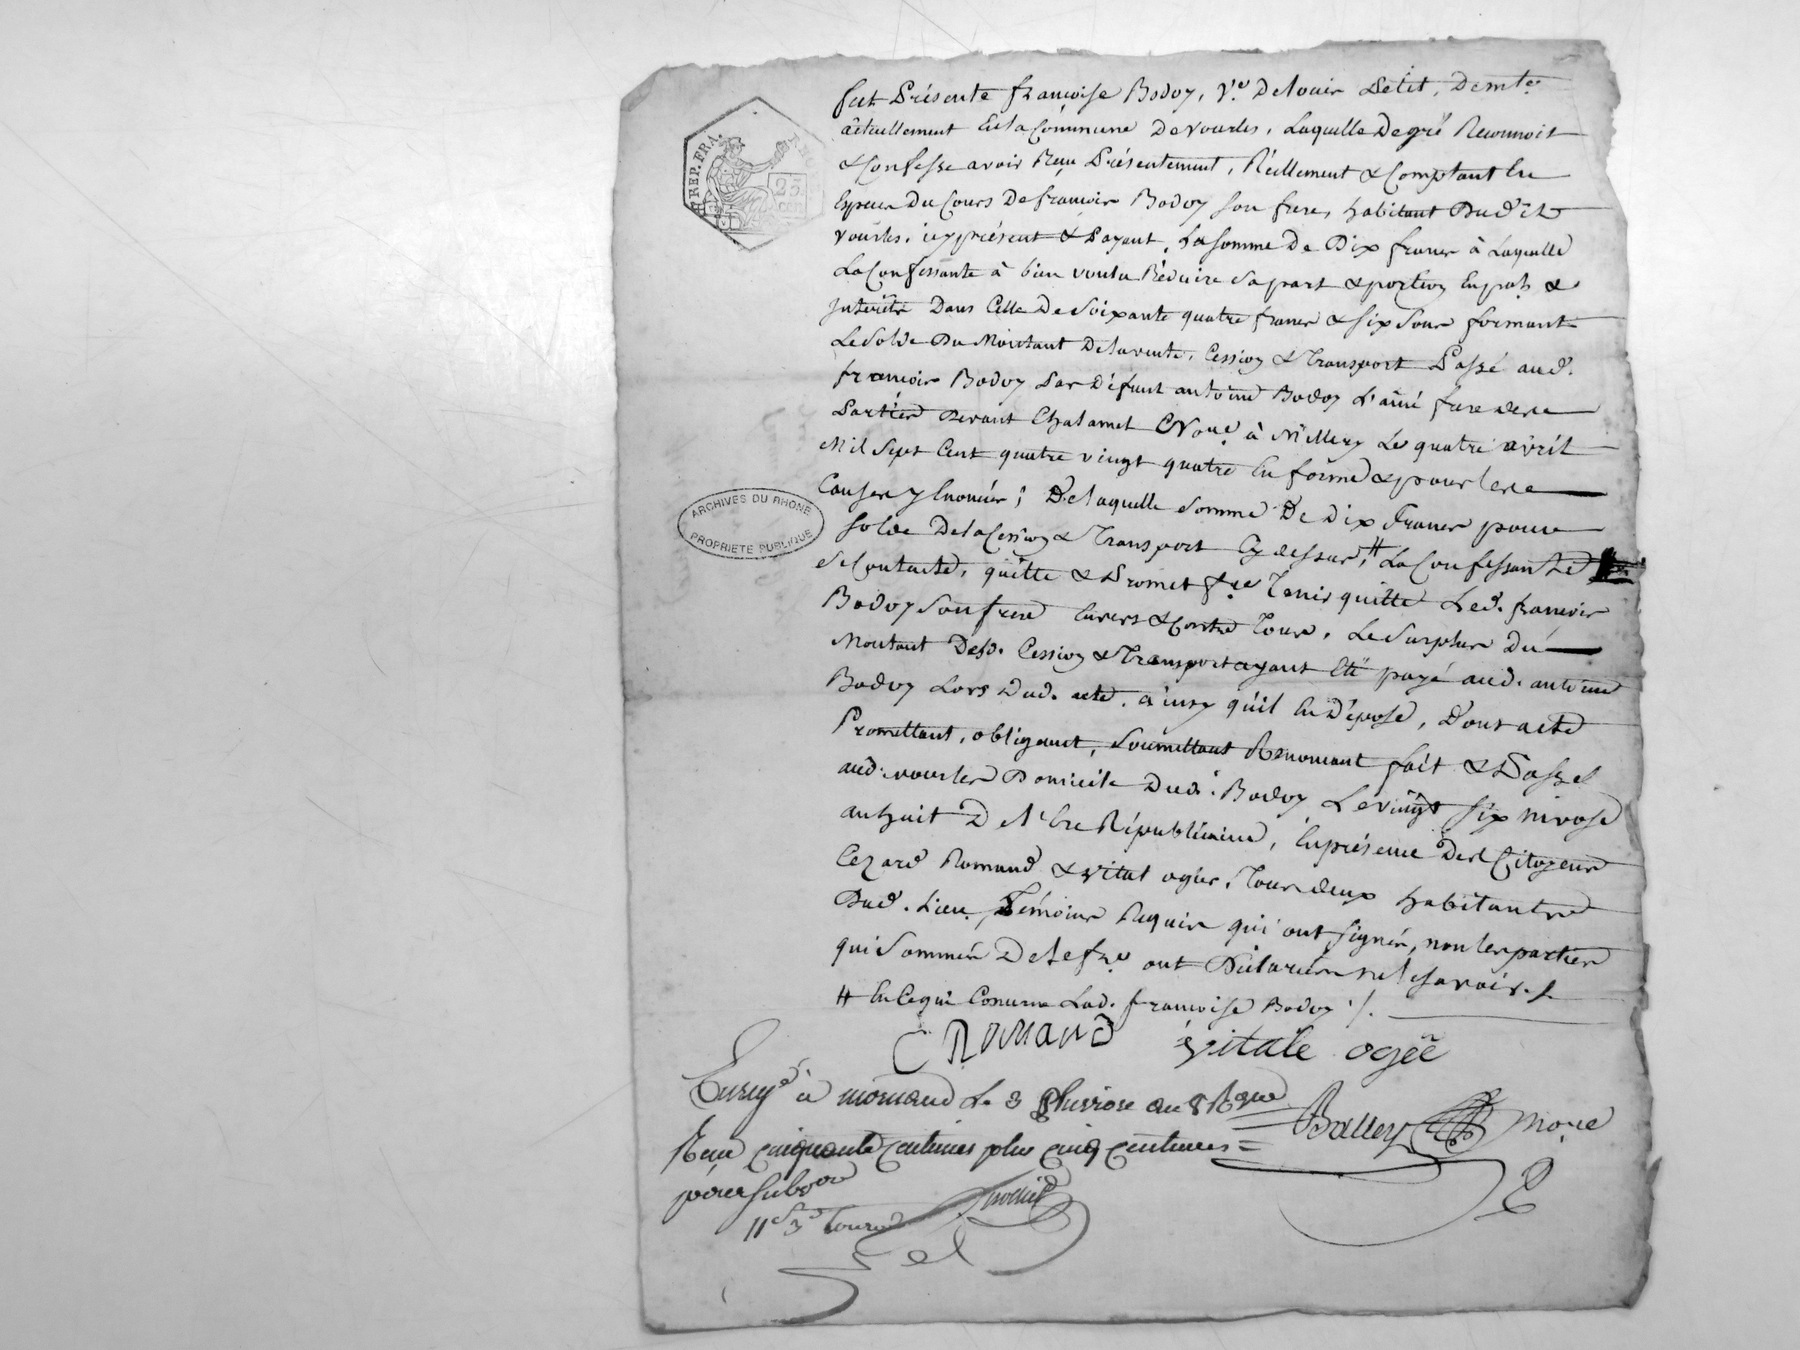 fut Présente françoise Bodoy, V.e Delouis Petit, Demte.
actuellement En la Commune De vourles, Laquelle De gré Reconnoit
& Confesse avoir Reçu Présentement, Réellement & Comptant En
Especes Du Cours De françois Bodoy son frere, habitant Dud.t
Vourles, icy présent & Payant, La somme De Dix francs à Laquelle
La Confessante à bien voulu Réduire sa part & portion En pal. &
Interêts Dans Celle De Soixante quatre francs & six sous formant
Le Solde Du Montant De la vente, Cession & Transport Passé aud.
françois Bodoy Par Défunt antoine Bodoy L'ainé frere des
Parties Devant Chalamel à Millery Le quatre avril
Mil Sept Cent quatre vingt quatre En forme & pour les
Causes y Enoncées; De laquelle Somme De Dix Francs pour
solde De la Cession & Transport Cy dessus, # La Confessante
Se Contente, quitte & Promet f.re Tenir quitte Led. françois
Bodoy Son frere Envers & Contre Tous. Le Surplus Du
Montant Desd. Cession & Transport ayant Eté payé aud. antoine
Bodoy Lors Dud. acte. ainsy qu'il En Dépose, Dont acte
Promettant, obligeant, Soumettant Renoncant fait & Passé
aud. vourles Domicile Dud. Bodoy Le vingt six nivose
an huit De l'Ere Républicaine, En présence Des Citoyens
Cezard Romand & vital ogier, Tous deux habitants
Dud. Lieu, Témoins Requis qui ont signés, non les parties
qui Sommées De le f.re ont Déclarées ne le savoir./.
# En Ce qui Concerne Lad. françoise Bodoy ./.
C Romand vitale ogée
Enreg.é à mornand Le 3 Pluviose an 8 R.que
Reçu cinquante Centimes plus cinq centimes =
pour subv.on
Balley no.re